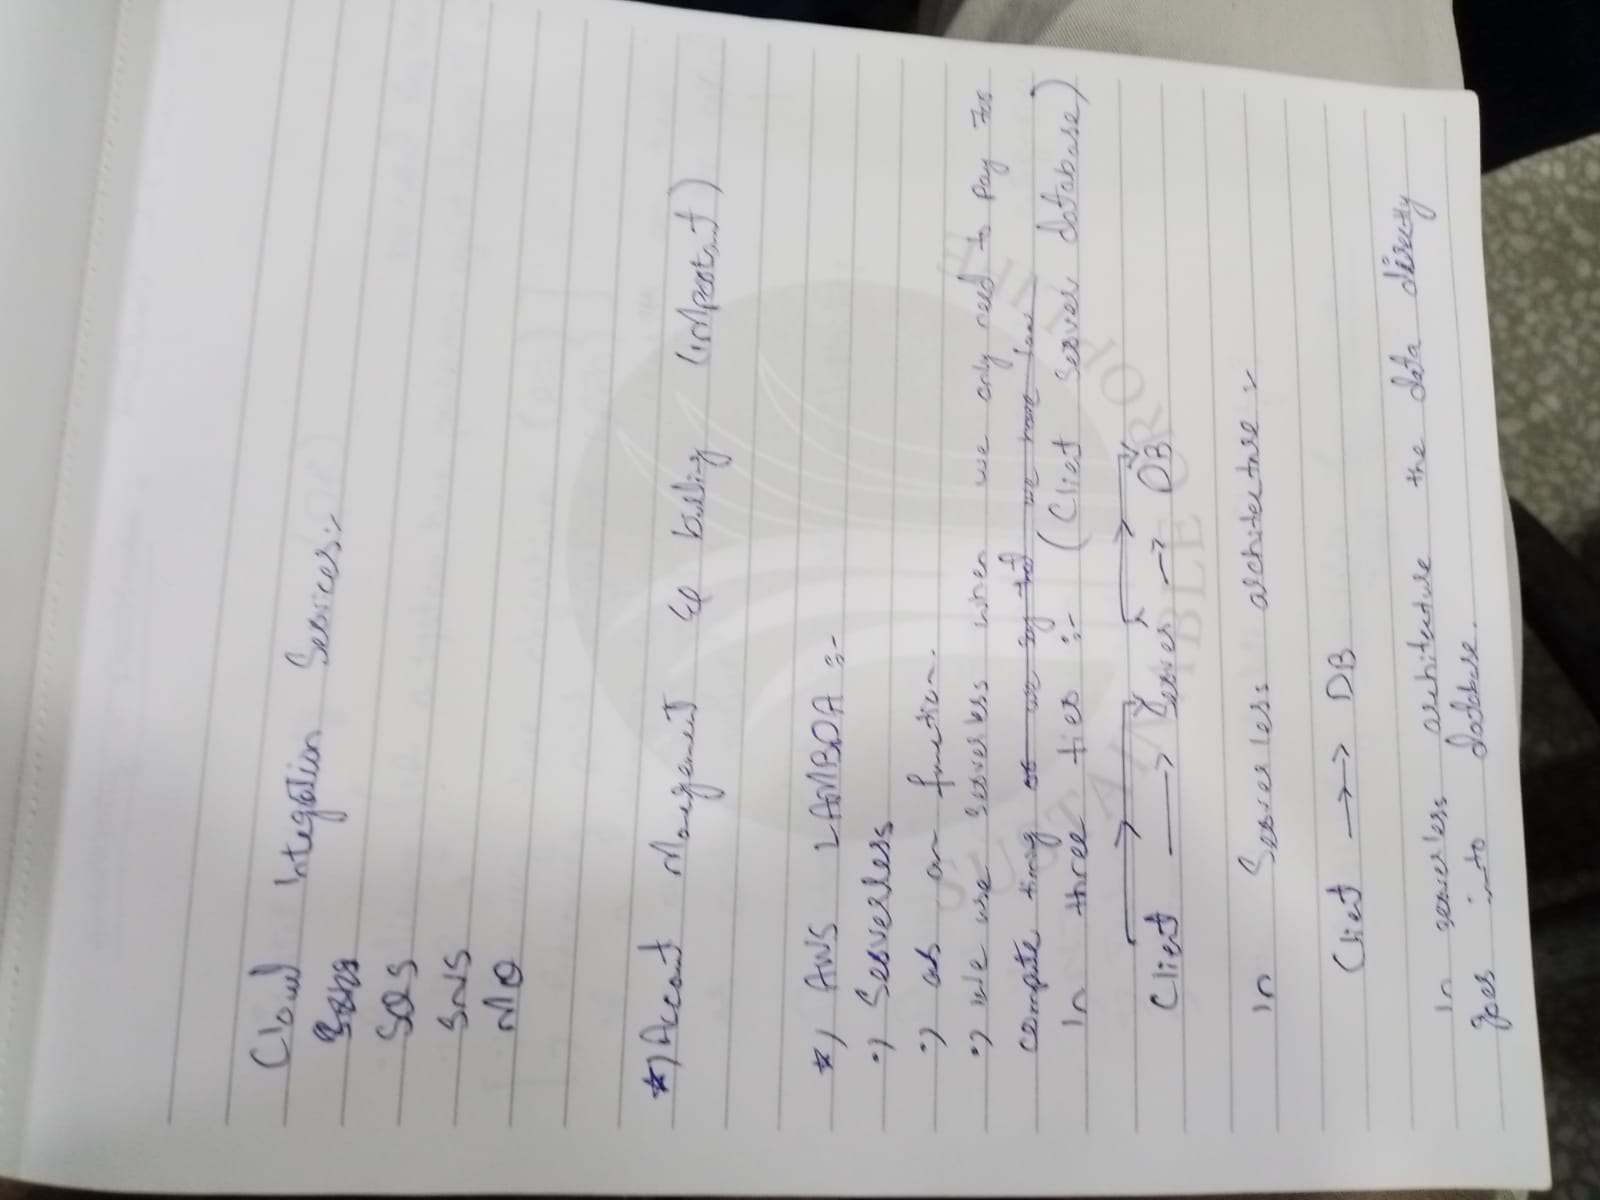 Cloud Integration Services:-
SQS
SNS
MQ
*) Account Management & billing (important)
*) AWS LAMBDA :-
•) Serverless
•) as an function.
•) we use serverless when we only need to pay for
compute timing as we say that we have
In three tier :- (Cliet Server database)
Cliet → Server → DB
In Serverless architecture :-
Cliet →→ DB
In serverless architecture the data directly
goes into database.
SUSTAINABLE
PROFILE